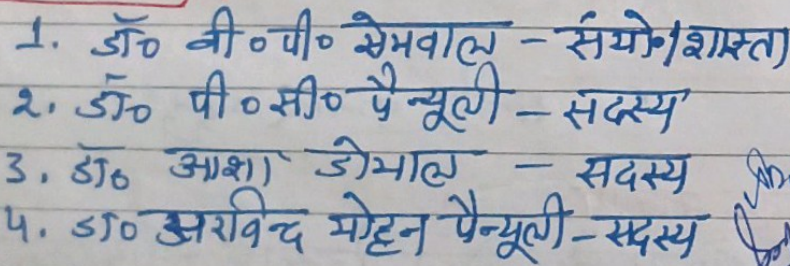 1. डॉ० वी०पी० सेमवाल - संयो०/शास्ता
2. डॉ० पी०सी० पैन्यूली - सदस्य
3. डॉ० आशा डोभाल - सदस्य
4. डॉ० अरविन्द मोहन पैन्यूली - सदस्य